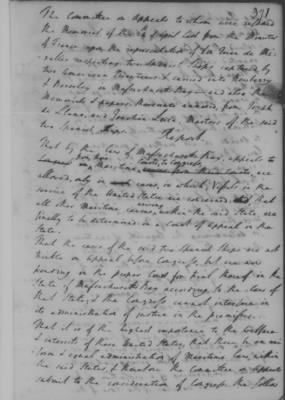 371
The Committee on Appeals to whom were referred
the Memorial of the of last from the Minister
of France upon the representation of Don Juan de Mi
ralles respecting two Spanish Ships captured by
two American Privateers & carried into Newbury
& in Massachusetts Bay and also the
Memorials & papers thereunto annexed, from Joseph
de Llano, and Joachin Luca, Masters of the said
two Spanish Ships.
Report
That by the Laws of Massachusetts Bay, appeals to
Congress
allowed, only in cases, in which Vessels in the
service of the United States are concerned, & that
all other maritime causes, within the said State, are
finally to be determined in a Court of Appeal in the
State.
That the cases of the said two Spanish Ships are not
triable on appeal before Congress, but are now
pending in the proper Court for final thereof in the
State of Massachusetts Bay according to the Laws of
that State, & that Congress cannot interfere in
the administration of justice in the premisses.
That it is of the highest importance to the welfare
& interests of these United States, that there be an uni
form & equal administration of Maritime Law, within
the said States, & therefore the Committee on Appeals
submit to the consideration of Congress the follow